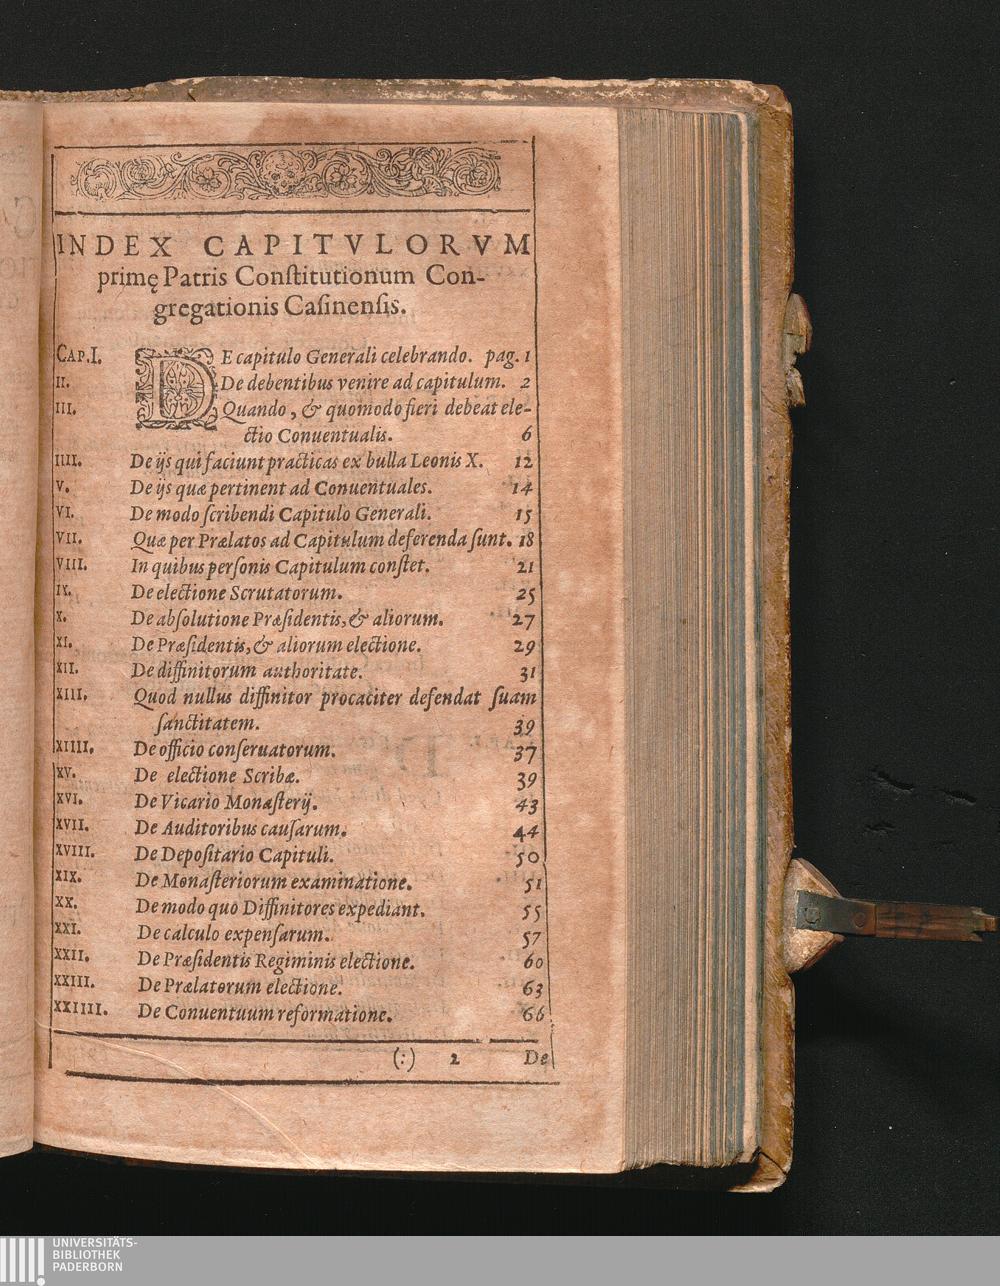 INDEX CAPITVLORVM
primę Patris Conſtitutionum Con-
gregationis Caſinenſis.
CAP.I. DE capitulo Generali celebrando. pag. 1
II. De debentibus venire ad capitulum. 2
III. Quando, & quomodo fieri debeat ele-
ctio Conuentualis. 6
IIII. De ijs qui faciunt practicas ex bulla Leonis X. 12
V. De ijs quæ pertinent ad Conuentuales. 14
VI. De modo ſcribendi Capitulo Generali. 15
VII. Quæ per Prælatos ad Capitulum deferenda ſunt. 18
VIII. In quibus perſonis Capitulum conſtet. 21
IX. De electione Scrutatorum. 25
X. De abſolutione Præſidentis, & aliorum. 27
XI. De Præſidentis, & aliorum electione. 29
XII. De diffinitorum authoritate. 31
XIII. Quod nullus diffinitor procaciter defendat ſuam
ſanctitatem. 39
XIIII. De officio conſeruatorum. 37
XV. De electione Scribæ. 39
XVI. De Vicario Monaſterij. 43
XVII. De Auditoribus cauſarum. 44
XVIII. De Depoſitario Capituli. 50
XIX. De Monaſteriorum examinatione. 51
XX. De modo quo Diffinitores expediant. 55
XXI. De calculo expenſarum. 57
XXII. De Præſidentis Regiminis electione. 60
XXIII. De Prælatorum electione. 63
XXIIII. De Conuentuum reformatione. 66
(:) 2 De
UNIVERSITÄTS-
BIBLIOTHEK
PADERBORN